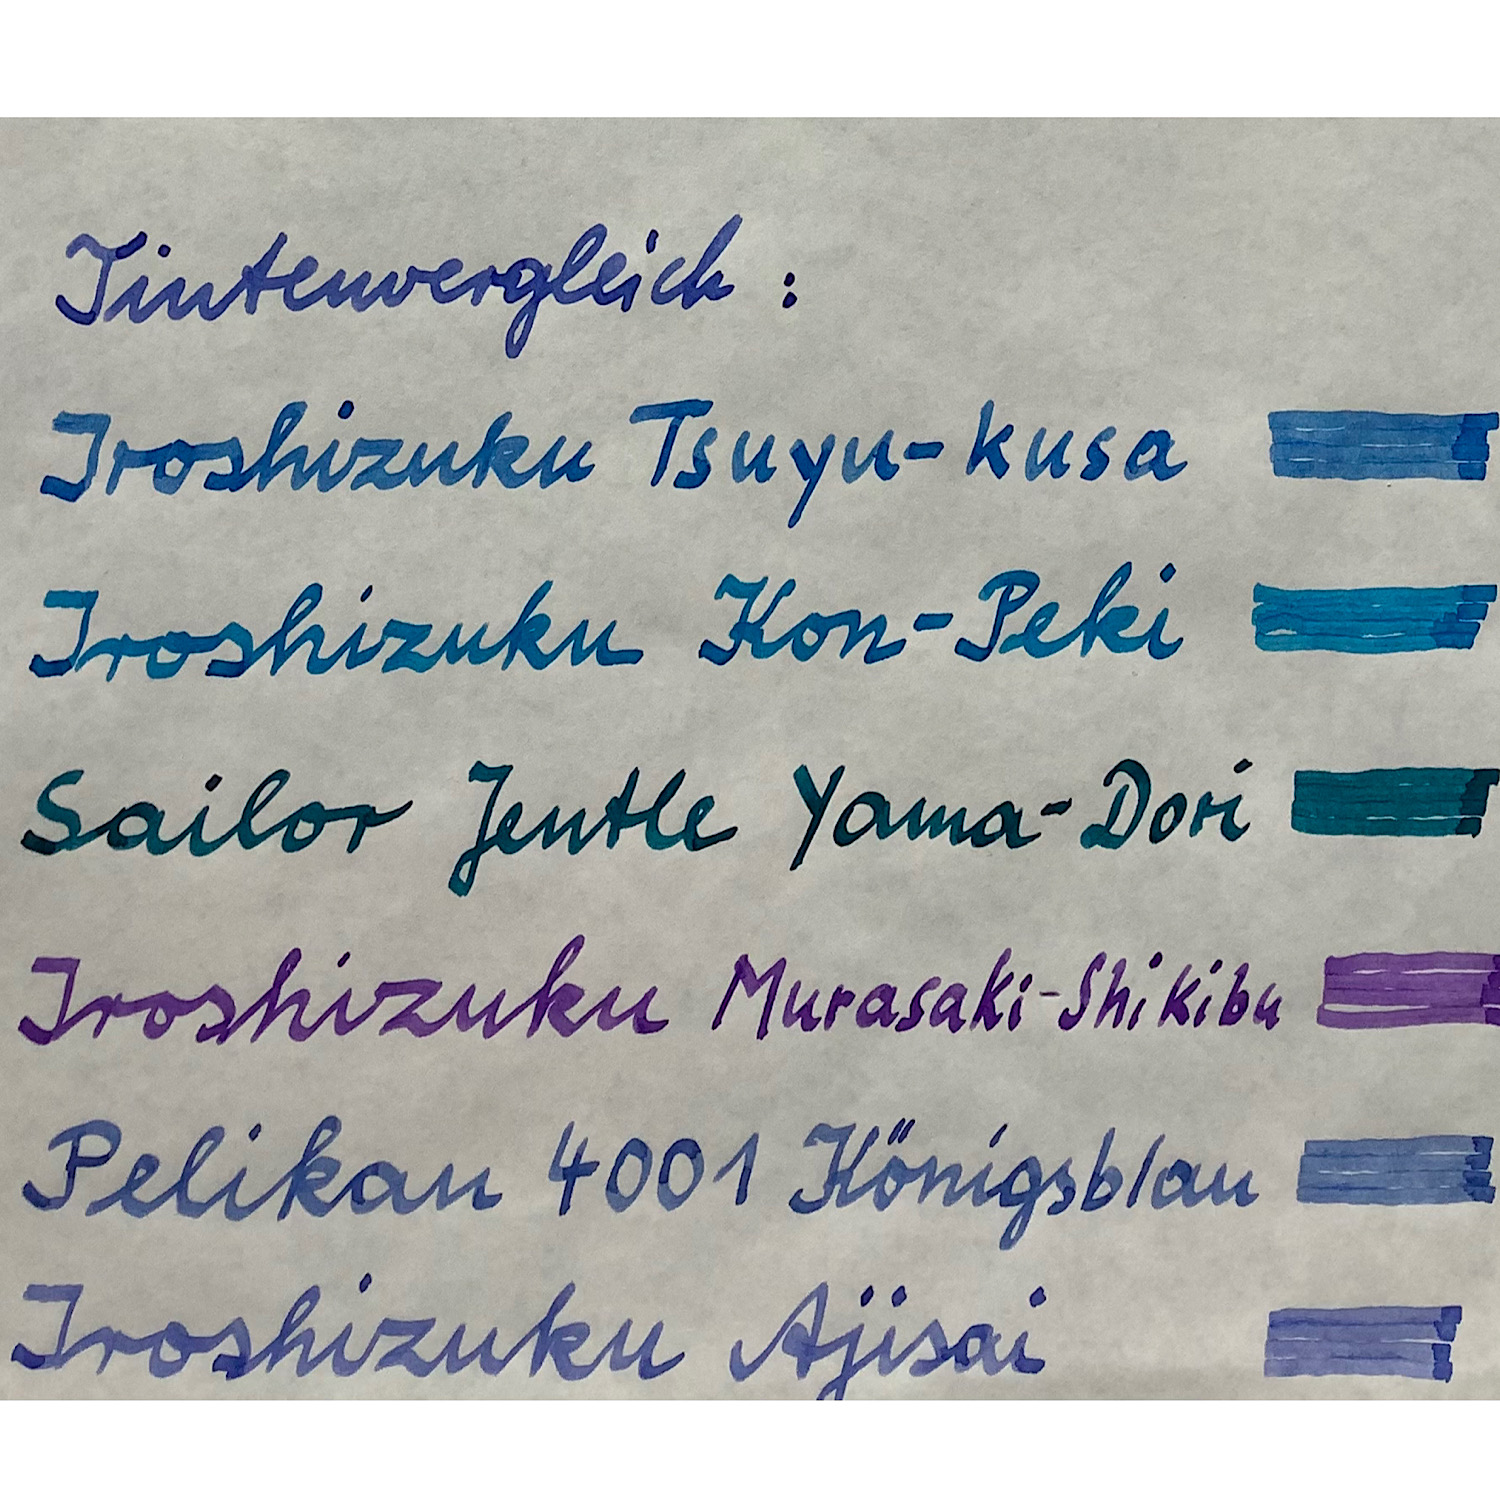 Tintenvergleich :
Iroshizuku Tsuyu-kusa
Iroshizuku Kon-Peki
Sailor Jentle Yama-Dori
Iroshizuku Murasaki-Shikibu
Pelikan 4001 Königsblau
Iroshizuku Ajisai